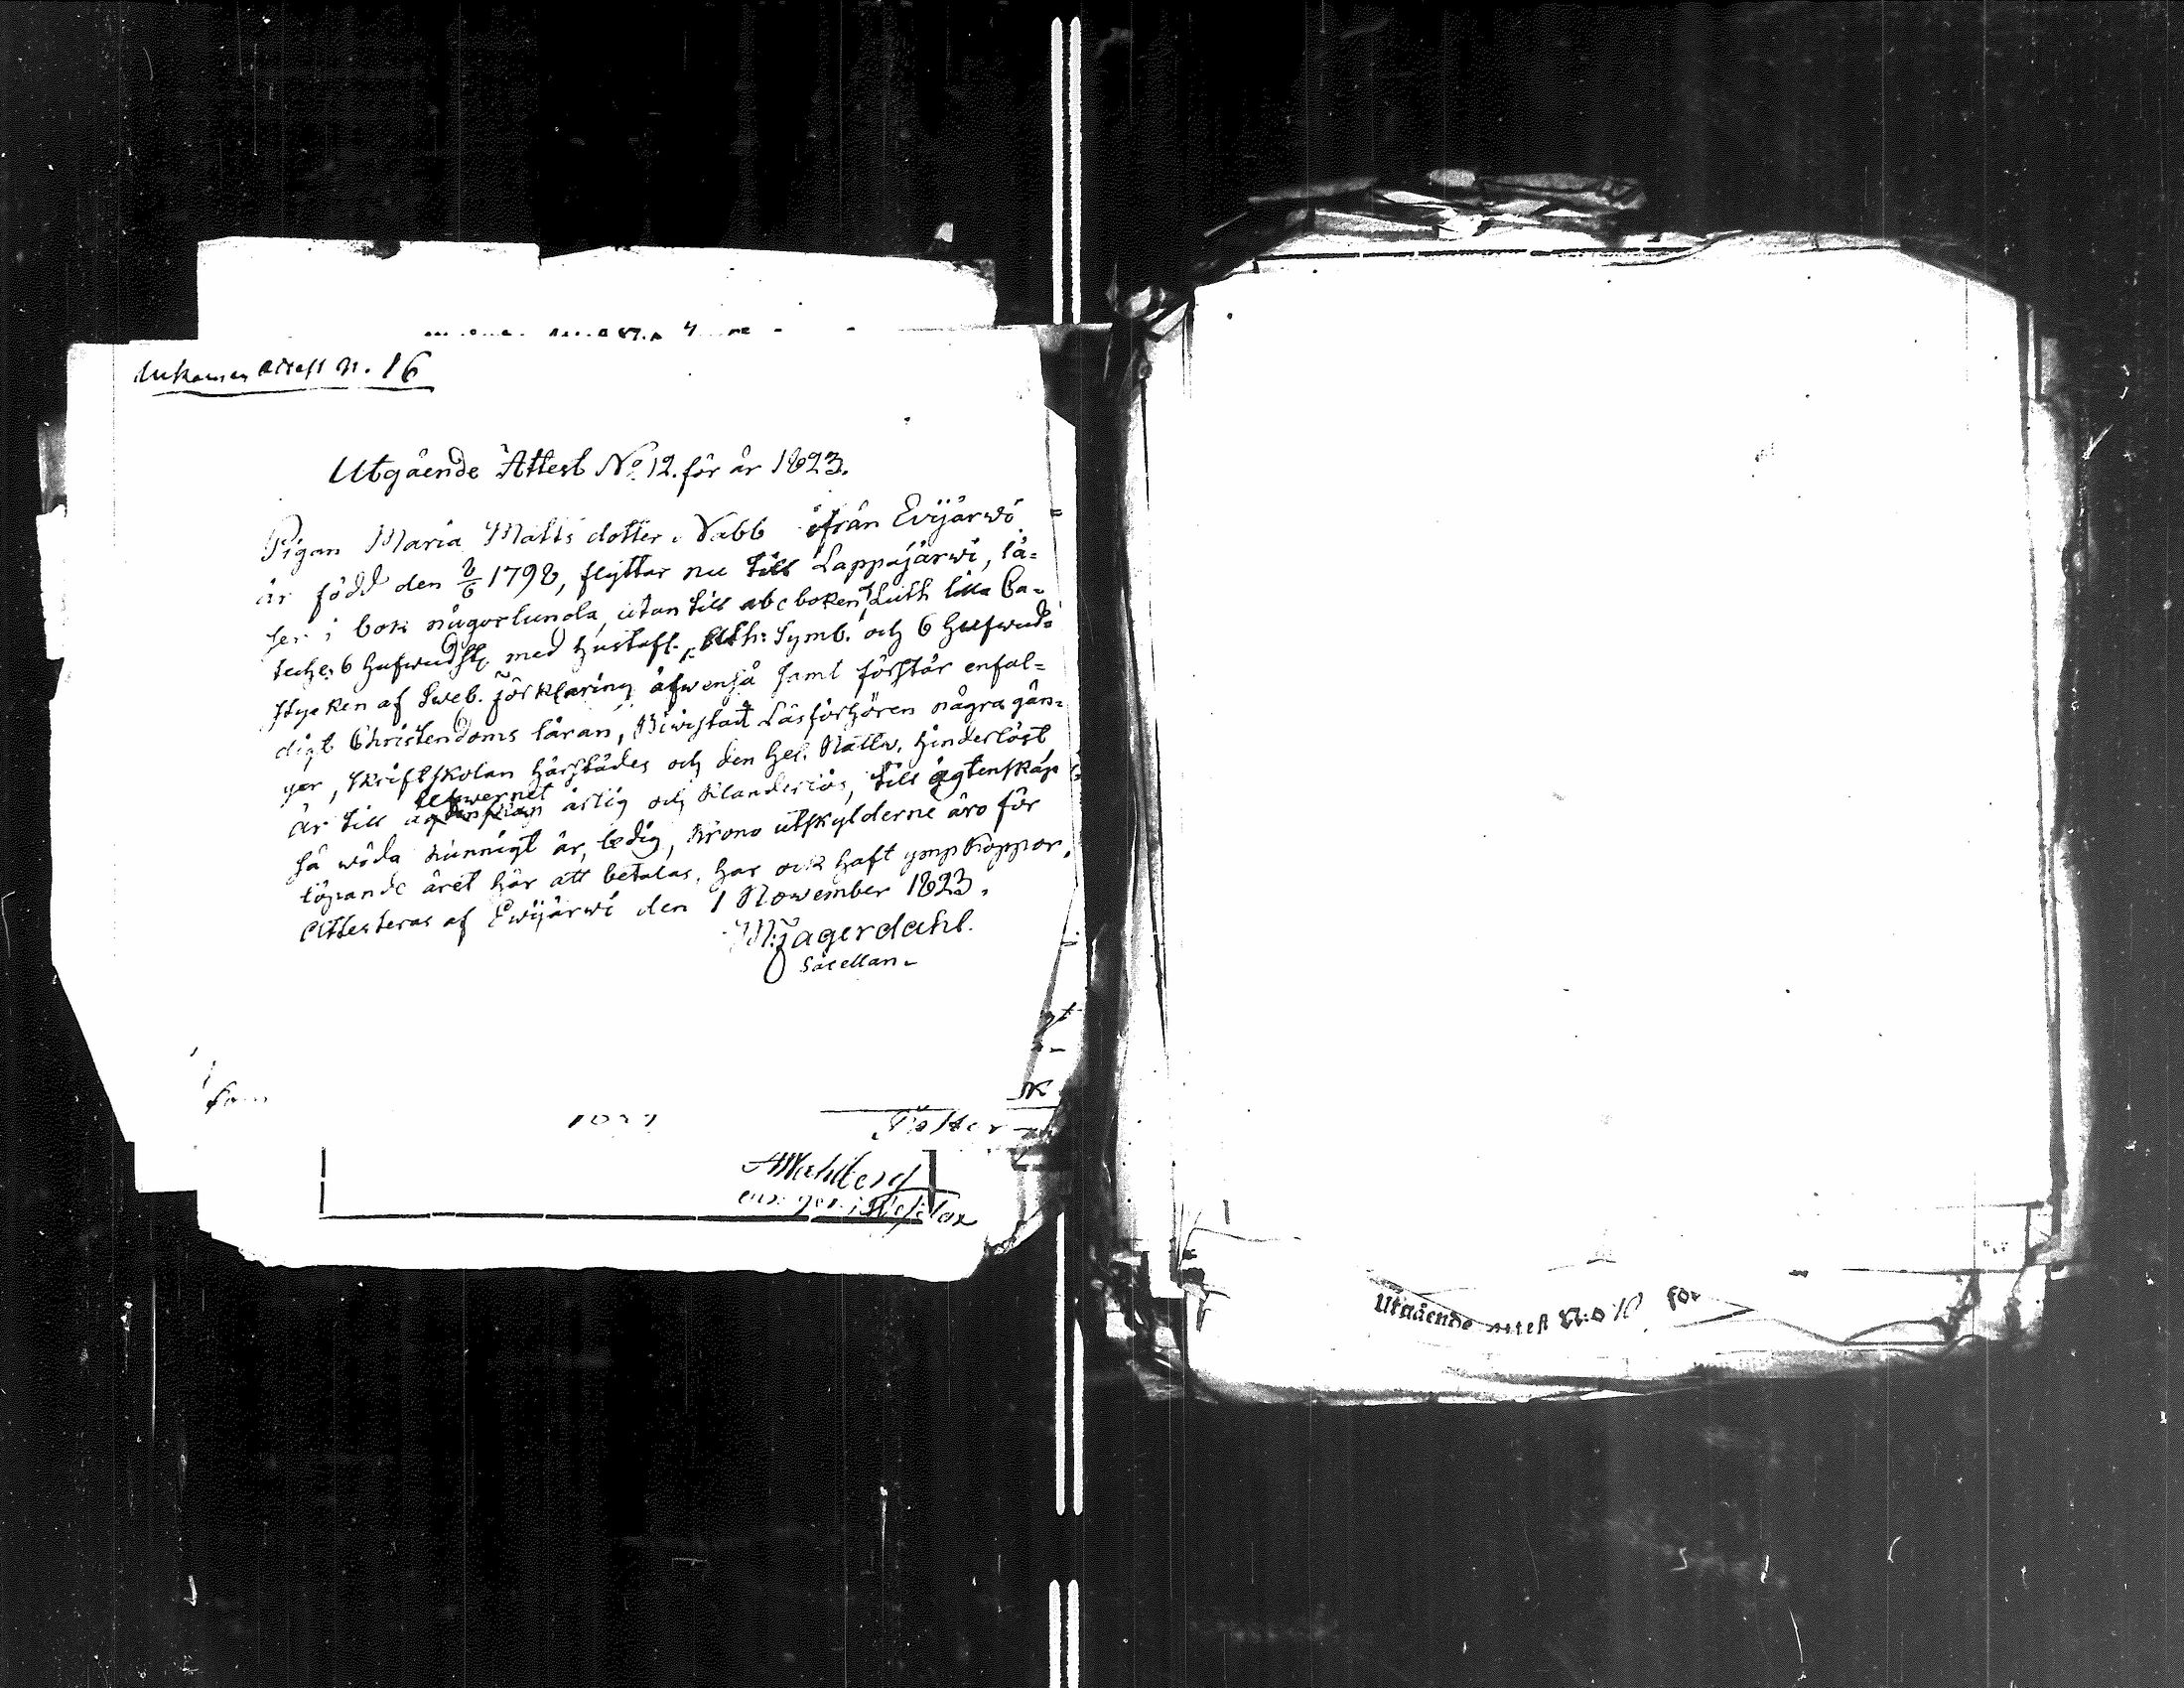 Inkomen Attest N. 16
Utgående Attest No 12. för år 1823.
Pigan Maria Matts dotter Nabb ifrån Evijärwi
är född den 8/6 1798, flyttar nu till Lappajärwi, lä-
ser i bok någorlunda, utan till abc boken, Luth lilla Ca-
teches 6 hufwudst. med hustafl., Ath: Symb. och 6 hufwud-
stycken af Sweb. förklaring äfwenså samt förstår enfal-
digt Christendoms läran, Biwistat Läsförhören några gån-
ger, skriftskolan härstädes och den hel. Nattw. hinderlöst
är till lefwernet ärlig och klanderlös, till ägtenskap
så wida kunnigt är, ledig, krono utskylderne äro för
löpande året här att betalas, har ock haft ymp koppor,
Attesteras af Ewijärwi den 1 Nowember 1823.
M. Jagerdahl.
Sacellan
AWahlberg
Utgående attest N:o 10 för